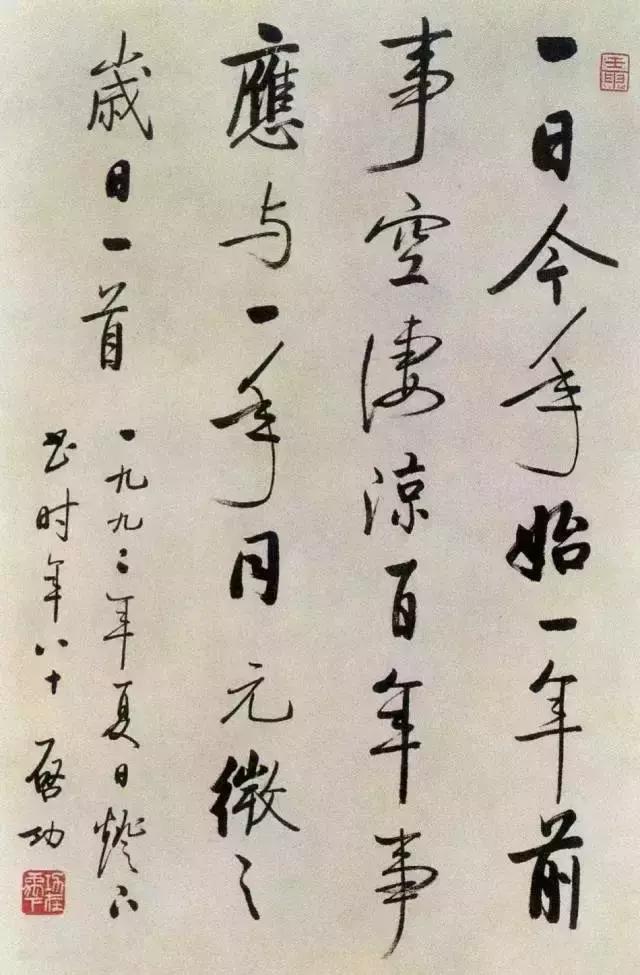 一日今年始一年前
事空淒涼百年事
應与一年同元微之
歳日一首
一九九二年夏日燈下
書时年八十啓功